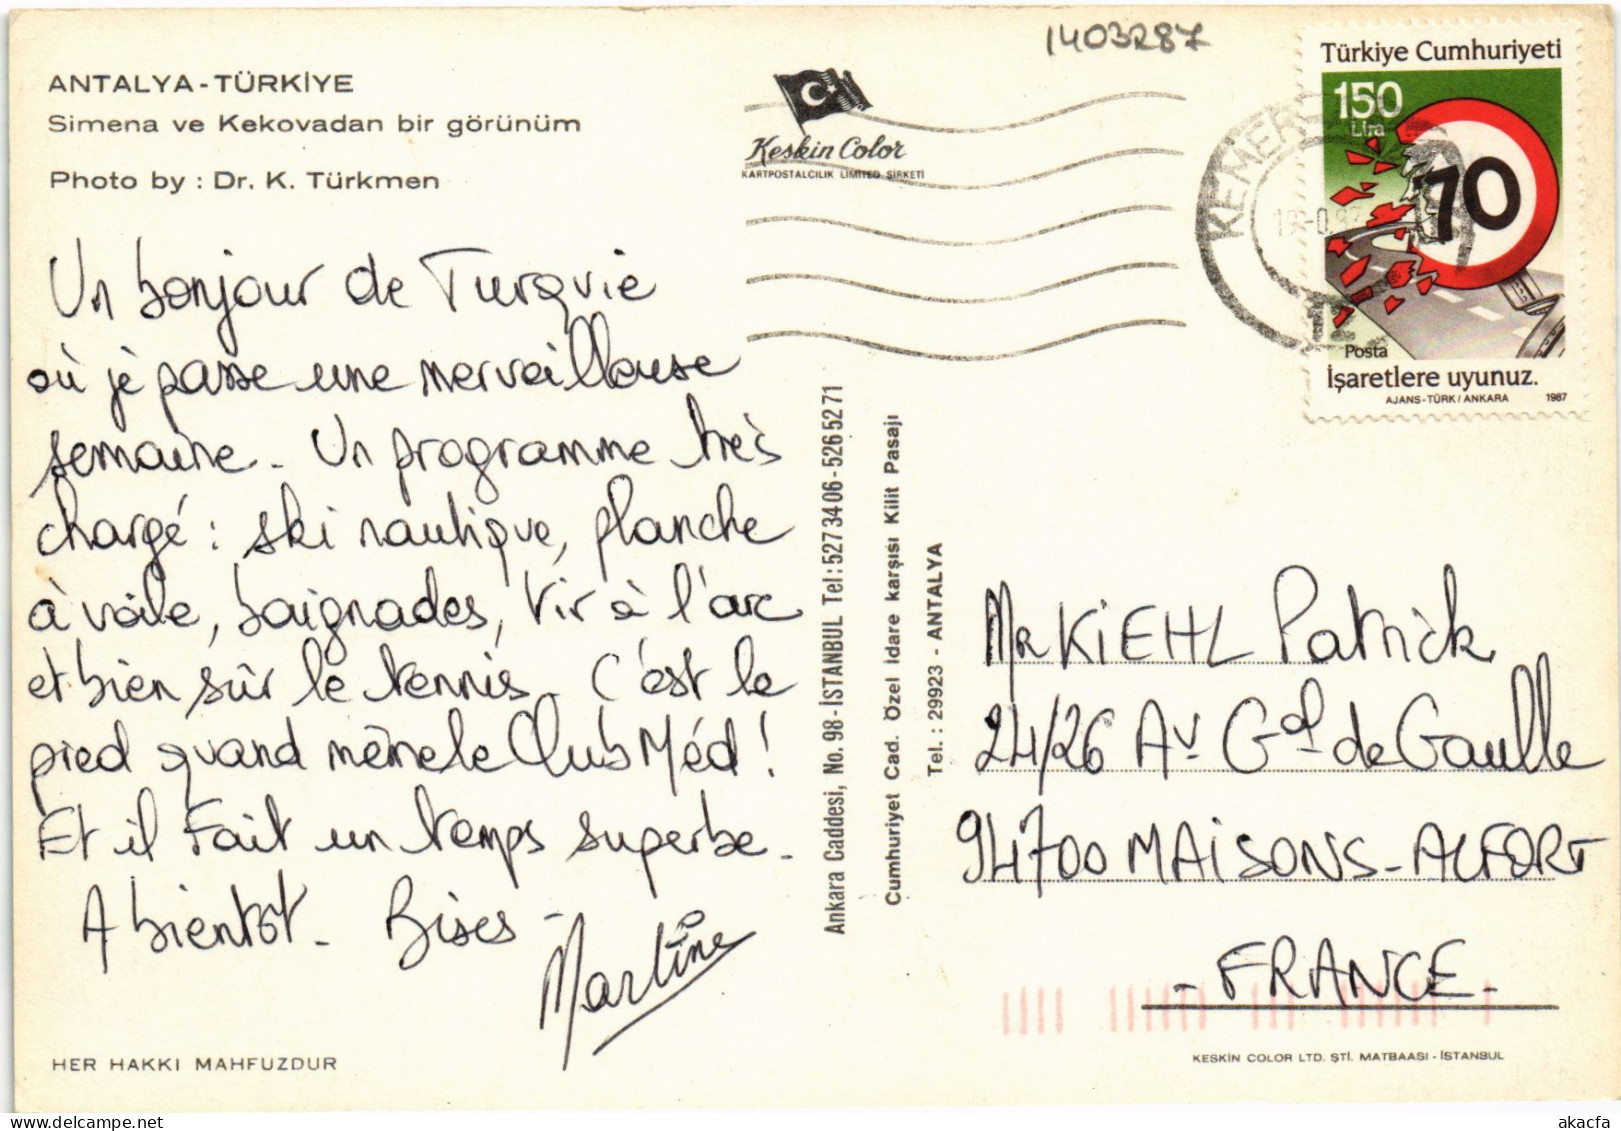 1403287
ANTALYA - TÜRKİYE
Simena ve Kekovadan bir görünüm
Photo by : Dr. K. Türkmen
Keskin Color
KARTPOSTALCILIK LIMITED ŞİRKETİ
KEMER
Türkiye Cumhuriyeti
150
Lira
70
Posta
İşaretlere uyunuz.
AJANS-TÜRK / ANKARA 1987
Un bonjour de Turquie
où je passe une merveilleuse
semaine. Un programme très
chargé : ski nautique, planche
à voile, baignades, tir à l'arc
et bien sûr le tennis. C'est le
pied quand même le Club Méd !
Et il fait un temps superbe.
A bientôt. Bises -
Martine
Ankara Caddesi, No. 98 - İSTANBUL Tel: 527 34 06 - 526 52 71
Cumhuriyet Cad. Özel İdare karşısı Kilit Pasajı
Tel. : 29923 - ANTALYA
Mr KIEHL Patrick
24/26 Av Gal de Gaulle
94700 MAISONS-ALFORT
- FRANCE -
HER HAKKI MAHFUZDUR
KESKİN COLOR LTD. ŞTİ. MATBAASI - İSTANBUL
akacfa